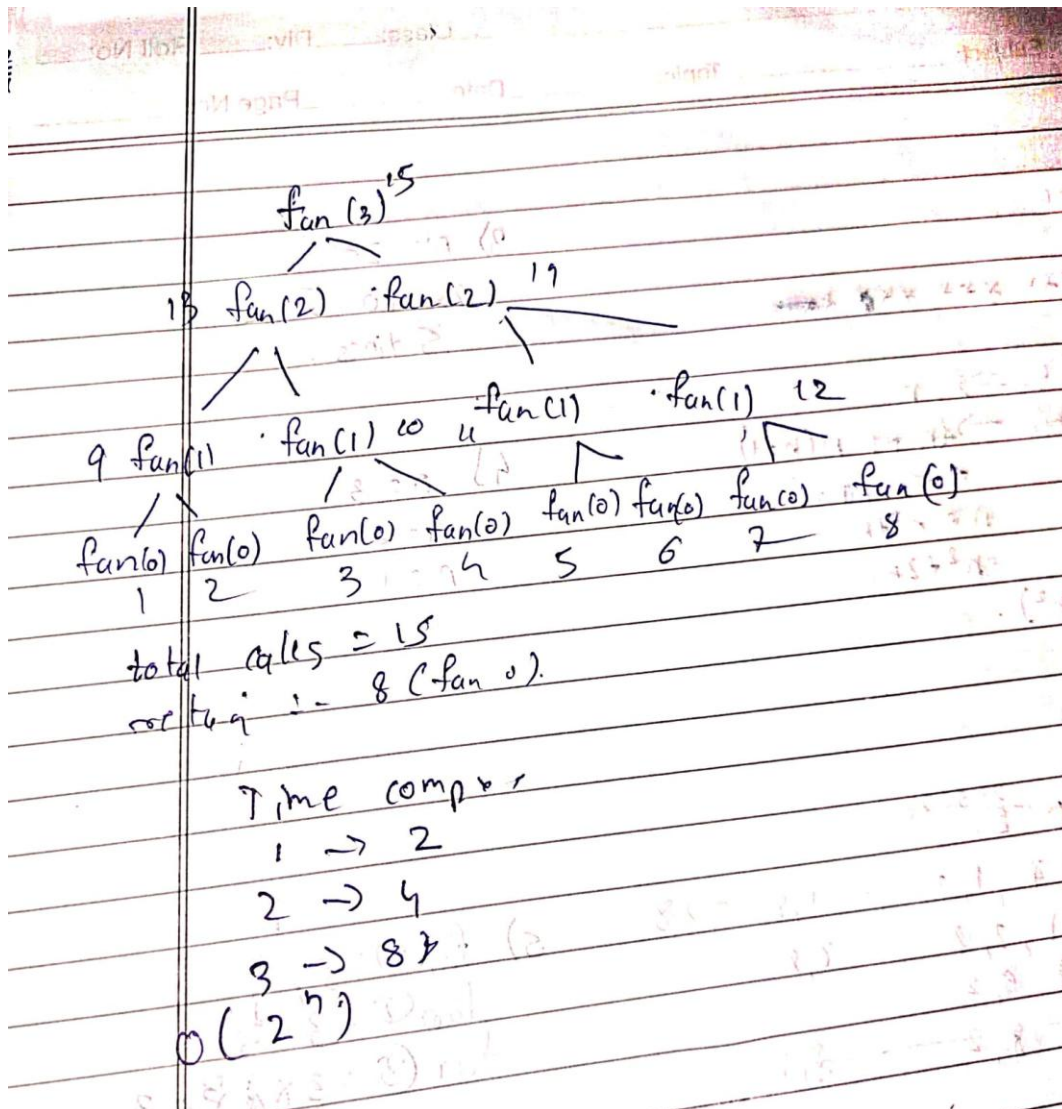 fun (3) 15
13 fun(2) fun(2) 19
9 fun(1) fun(1) 10 11 fun(1) fun(1) 12
fun(0) fun(0) fun(0) fun(0) fun(0) fun(0) fun(0) fun(0)
1 2 3 4 5 6 7 8
total calls = 15
8 (fun 0).
Time
1 → 2
2 → 4
3 → 8
O(2ⁿ)